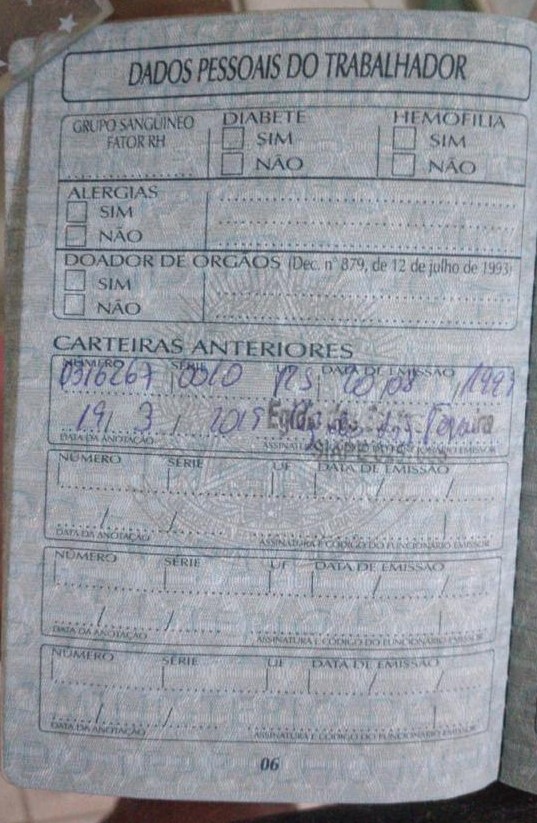 DADOS PESSOAIS DO TRABALHADOR
GRUPO SANGÜINEO
FATOR RH
DIABETE
SIM
NÃO
HEMOFILIA
SIM
NÃO
ALERGIAS
SIM
NÃO
DOADOR DE ORGÃOS (Dec. nº 879, de 12 de julho de 1993)
SIM
NÃO
CARTEIRAS ANTERIORES
NÚMERO SÉRIE UF DATA DE EMISSÃO
0316267 0010 RS 1997
19 / 3 / 2015
DATA DA ANOTAÇÃO
NÚMERO SÉRIE UF DATA DE EMISSÃO
DATA DA ANOTAÇÃO ASSINATURA E CÓDIGO DO FUNCIONÁRIO EMISSOR
NÚMERO SÉRIE UF DATA DE EMISSÃO
DATA DA ANOTAÇÃO ASSINATURA E CÓDIGO DO FUNCIONÁRIO EMISSOR
NÚMERO SÉRIE UF DATA DE EMISSÃO
DATA DA ANOTAÇÃO ASSINATURA E CÓDIGO DO FUNCIONÁRIO EMISSOR
06